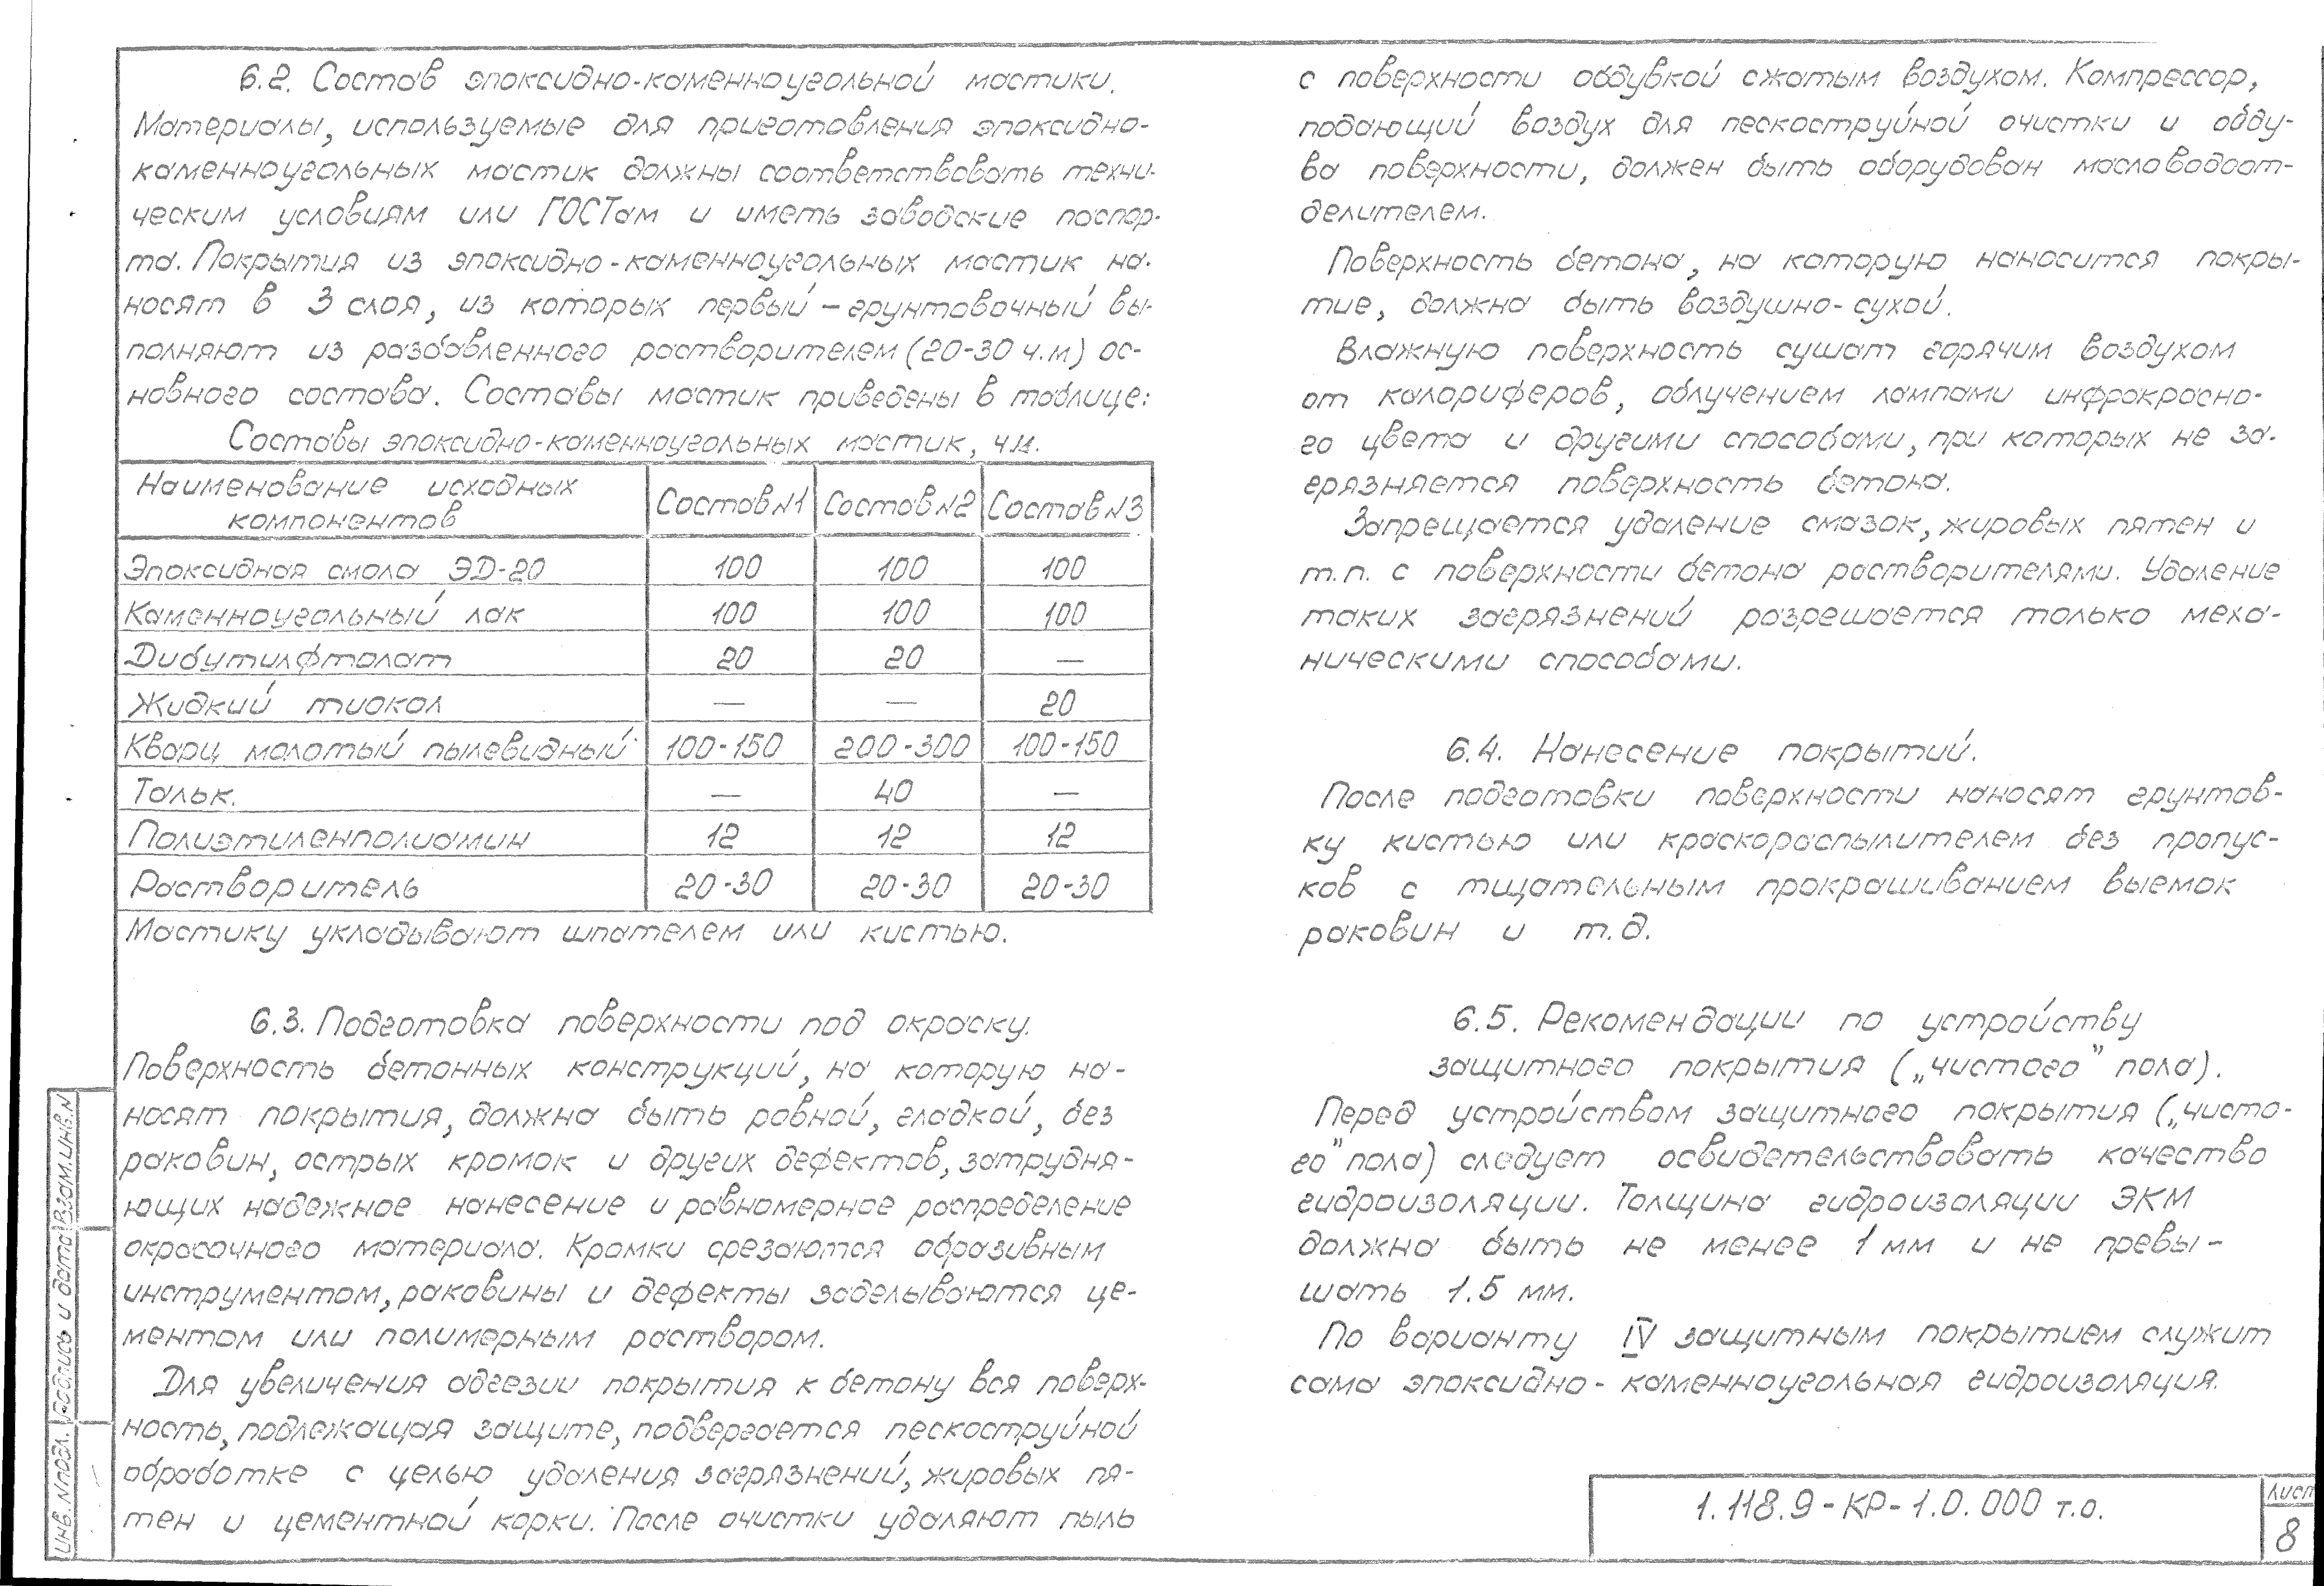 6.2. Состав эпоксидно-каменноугольной мастики.
Материалы, используемые для приготовления эпоксидно-
каменноугольных мастик должны соответствовать техни-
ческим условиям или ГОСТам и иметь заводские паспор-
та. Покрытия из эпоксидно-каменноугольных мастик на-
носят в 3 слоя, из которых первый – грунтовочный вы-
полняют из разбавленного растворителем (20-30 ч.м) ос-
новного состава. Составы мастик приведены в таблице:
Составы эпоксидно-каменноугольных мастик, ч.м.
Наименование исходных компонентов Состав N1 Состав N2 Состав N3
Эпоксидная смола ЭД-20 100 100 100
Каменноугольный лак 100 100 100
Дибутилфталат 20 20 —
Жидкий тиокол — — 20
Кварц молотый пылевидный 100-150 200-300 100-150
Тальк. — 40 —
Полиэтиленполиамин 12 12 12
Растворитель 20-30 20-30 20-30
Мастику укладывают шпателем или кистью.
6.3. Подготовка поверхности под окраску.
Поверхность бетонных конструкций, на которую на-
носят покрытия, должна быть ровной, гладкой, без
раковин, острых кромок и других дефектов, затрудня-
ющих надежное нанесение и равномерное распределение
окрасочного материала. Кромки срезаются абразивным
инструментом, раковины и дефекты заделываются це-
ментом или полимерным раствором.
Для увеличения адгезии покрытия к бетону вся поверх-
ность, подлежащая защите, подвергается пескоструйной
обработке с целью удаления загрязнений, жировых пя-
тен и цементной корки. После очистки удаляют пыль
с поверхности обдувкой сжатым воздухом. Компрессор,
подающий воздух для пескоструйной очистки и обду-
ва поверхности, должен быть оборудован масловодоот-
делителем.
Поверхность бетона, на которую наносится покры-
тие, должна быть воздушно-сухой.
Влажную поверхность сушат горячим воздухом
от калориферов, облучением лампами инфракрасно-
го цвета и другими способами, при которых не за-
грязняется поверхность бетона.
Запрещается удаление смазок, жировых пятен и
т.п. с поверхности бетона растворителями. Удаление
таких загрязнений разрешается только меха-
ническими способами.
6.4. Нанесение покрытий.
После подготовки поверхности наносят грунтов-
ку кистью или краскораспылителем без пропус-
ков с тщательным прокрашиванием выемок
раковин и т.д.
6.5. Рекомендации по устройству
защитного покрытия („чистого" пола).
Перед устройством защитного покрытия („чисто-
го" пола) следует освидетельствовать качество
гидроизоляции. Толщина гидроизоляции ЭКМ
должна быть не менее 1 мм и не превы-
шать 1.5 мм.
По варианту IV защитным покрытием служит
сама эпоксидно-каменноугольная гидроизоляция.
Инв. N подл. Подпись и дата Взам.инв.N
1.118.9-КР-1.0.000 т.о.
Лист
8